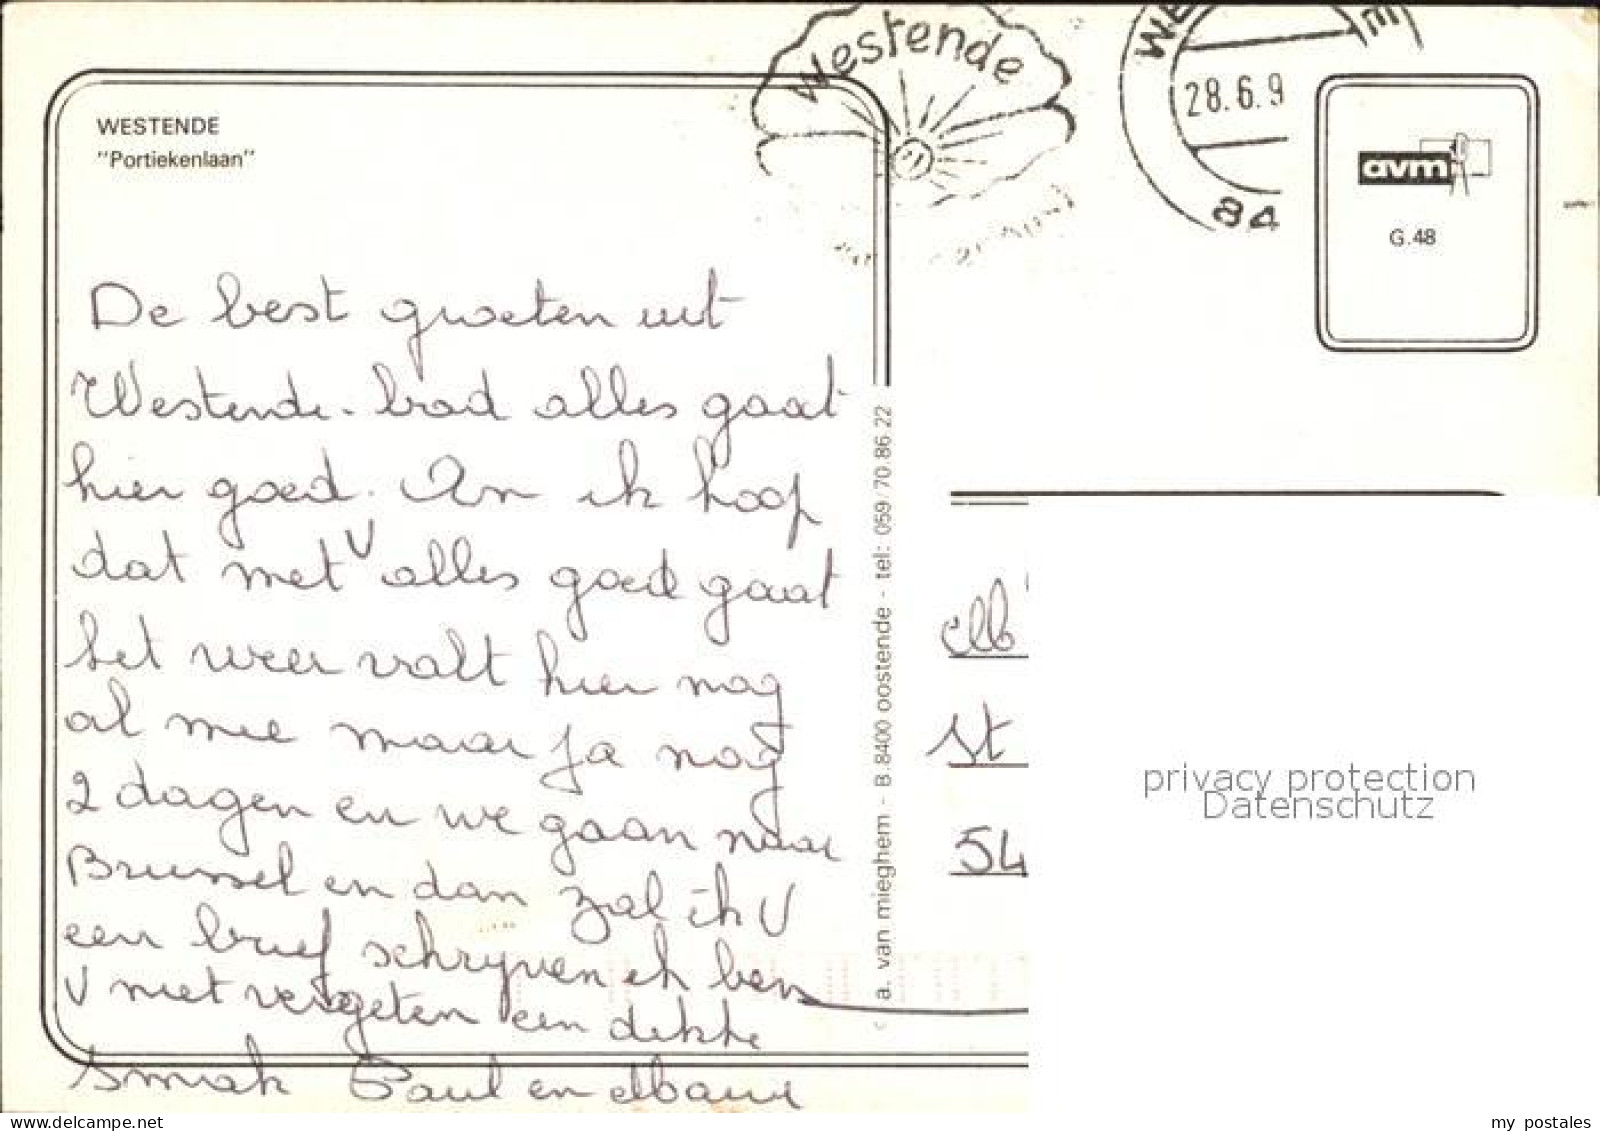 Westende
28.6.9
84
WESTENDE
"Portiekenlaan"
avm
G.48
De best groeten uit
Westende-bad alles gaat
hier goed. En ik hoop
dat met U alles goed gaat
het weer valt hier nog
al mee maar ja nog
2 dagen en we gaan naar
Brussel en dan zal ik U
een brief schrijven ik ben
U niet vergeten een dikke
smak Paul en
a. van mieghem - B.8400 oostende - tel: 059/70.86.22
St
54
privacy protection
Datenschutz
delcampe.net
my_postales